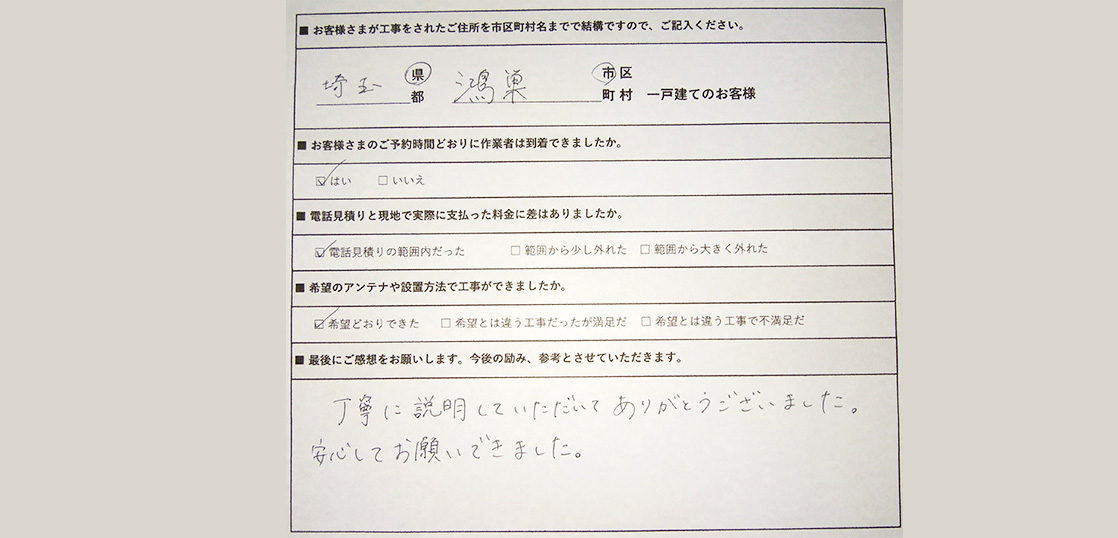 ■ お客様さまが工事をされたご住所を市区町村名までで結構ですので、ご記入ください。
埼玉 県 都 鴻巣 市 区 町 村 一戸建てのお客様
■ お客様さまのご予約時間どおりに作業者は到着できましたか。
☑ はい □ いいえ
■ 電話見積りと現地で実際に支払った料金に差はありましたか。
☑ 電話見積りの範囲内だった □ 範囲から少し外れた □ 範囲から大きく外れた
■ 希望のアンテナや設置方法で工事ができましたか。
☑ 希望どおりできた □ 希望とは違う工事だったが満足だ □ 希望とは違う工事で不満足だ
■ 最後にご感想をお願いします。今後の励み、参考とさせていただきます。
丁寧に説明していただいてありがとうございました。
安心してお願いできました。